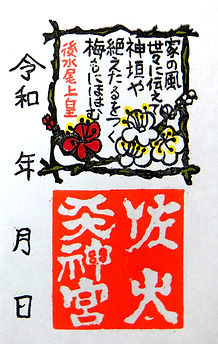 家の風
世々に伝え
神垣や
絶えたるを
後水尾上皇
佐太
天神宮
令和 年 月 日